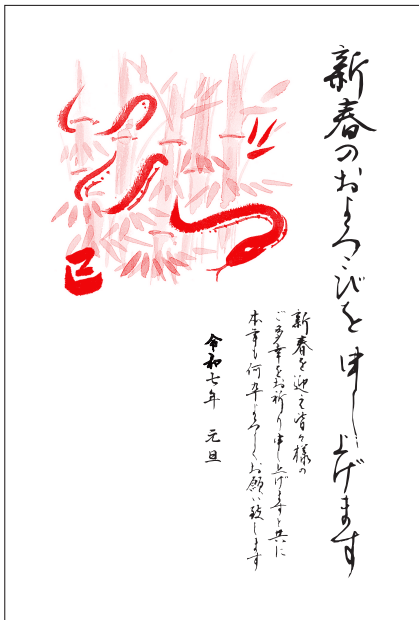 新春のおよろこびを申し上げます
新春を迎え皆々様の
ご多幸をお祈り申し上げますと共に
本年も何卒よろしくお願い致します
令和七年 元旦
巳